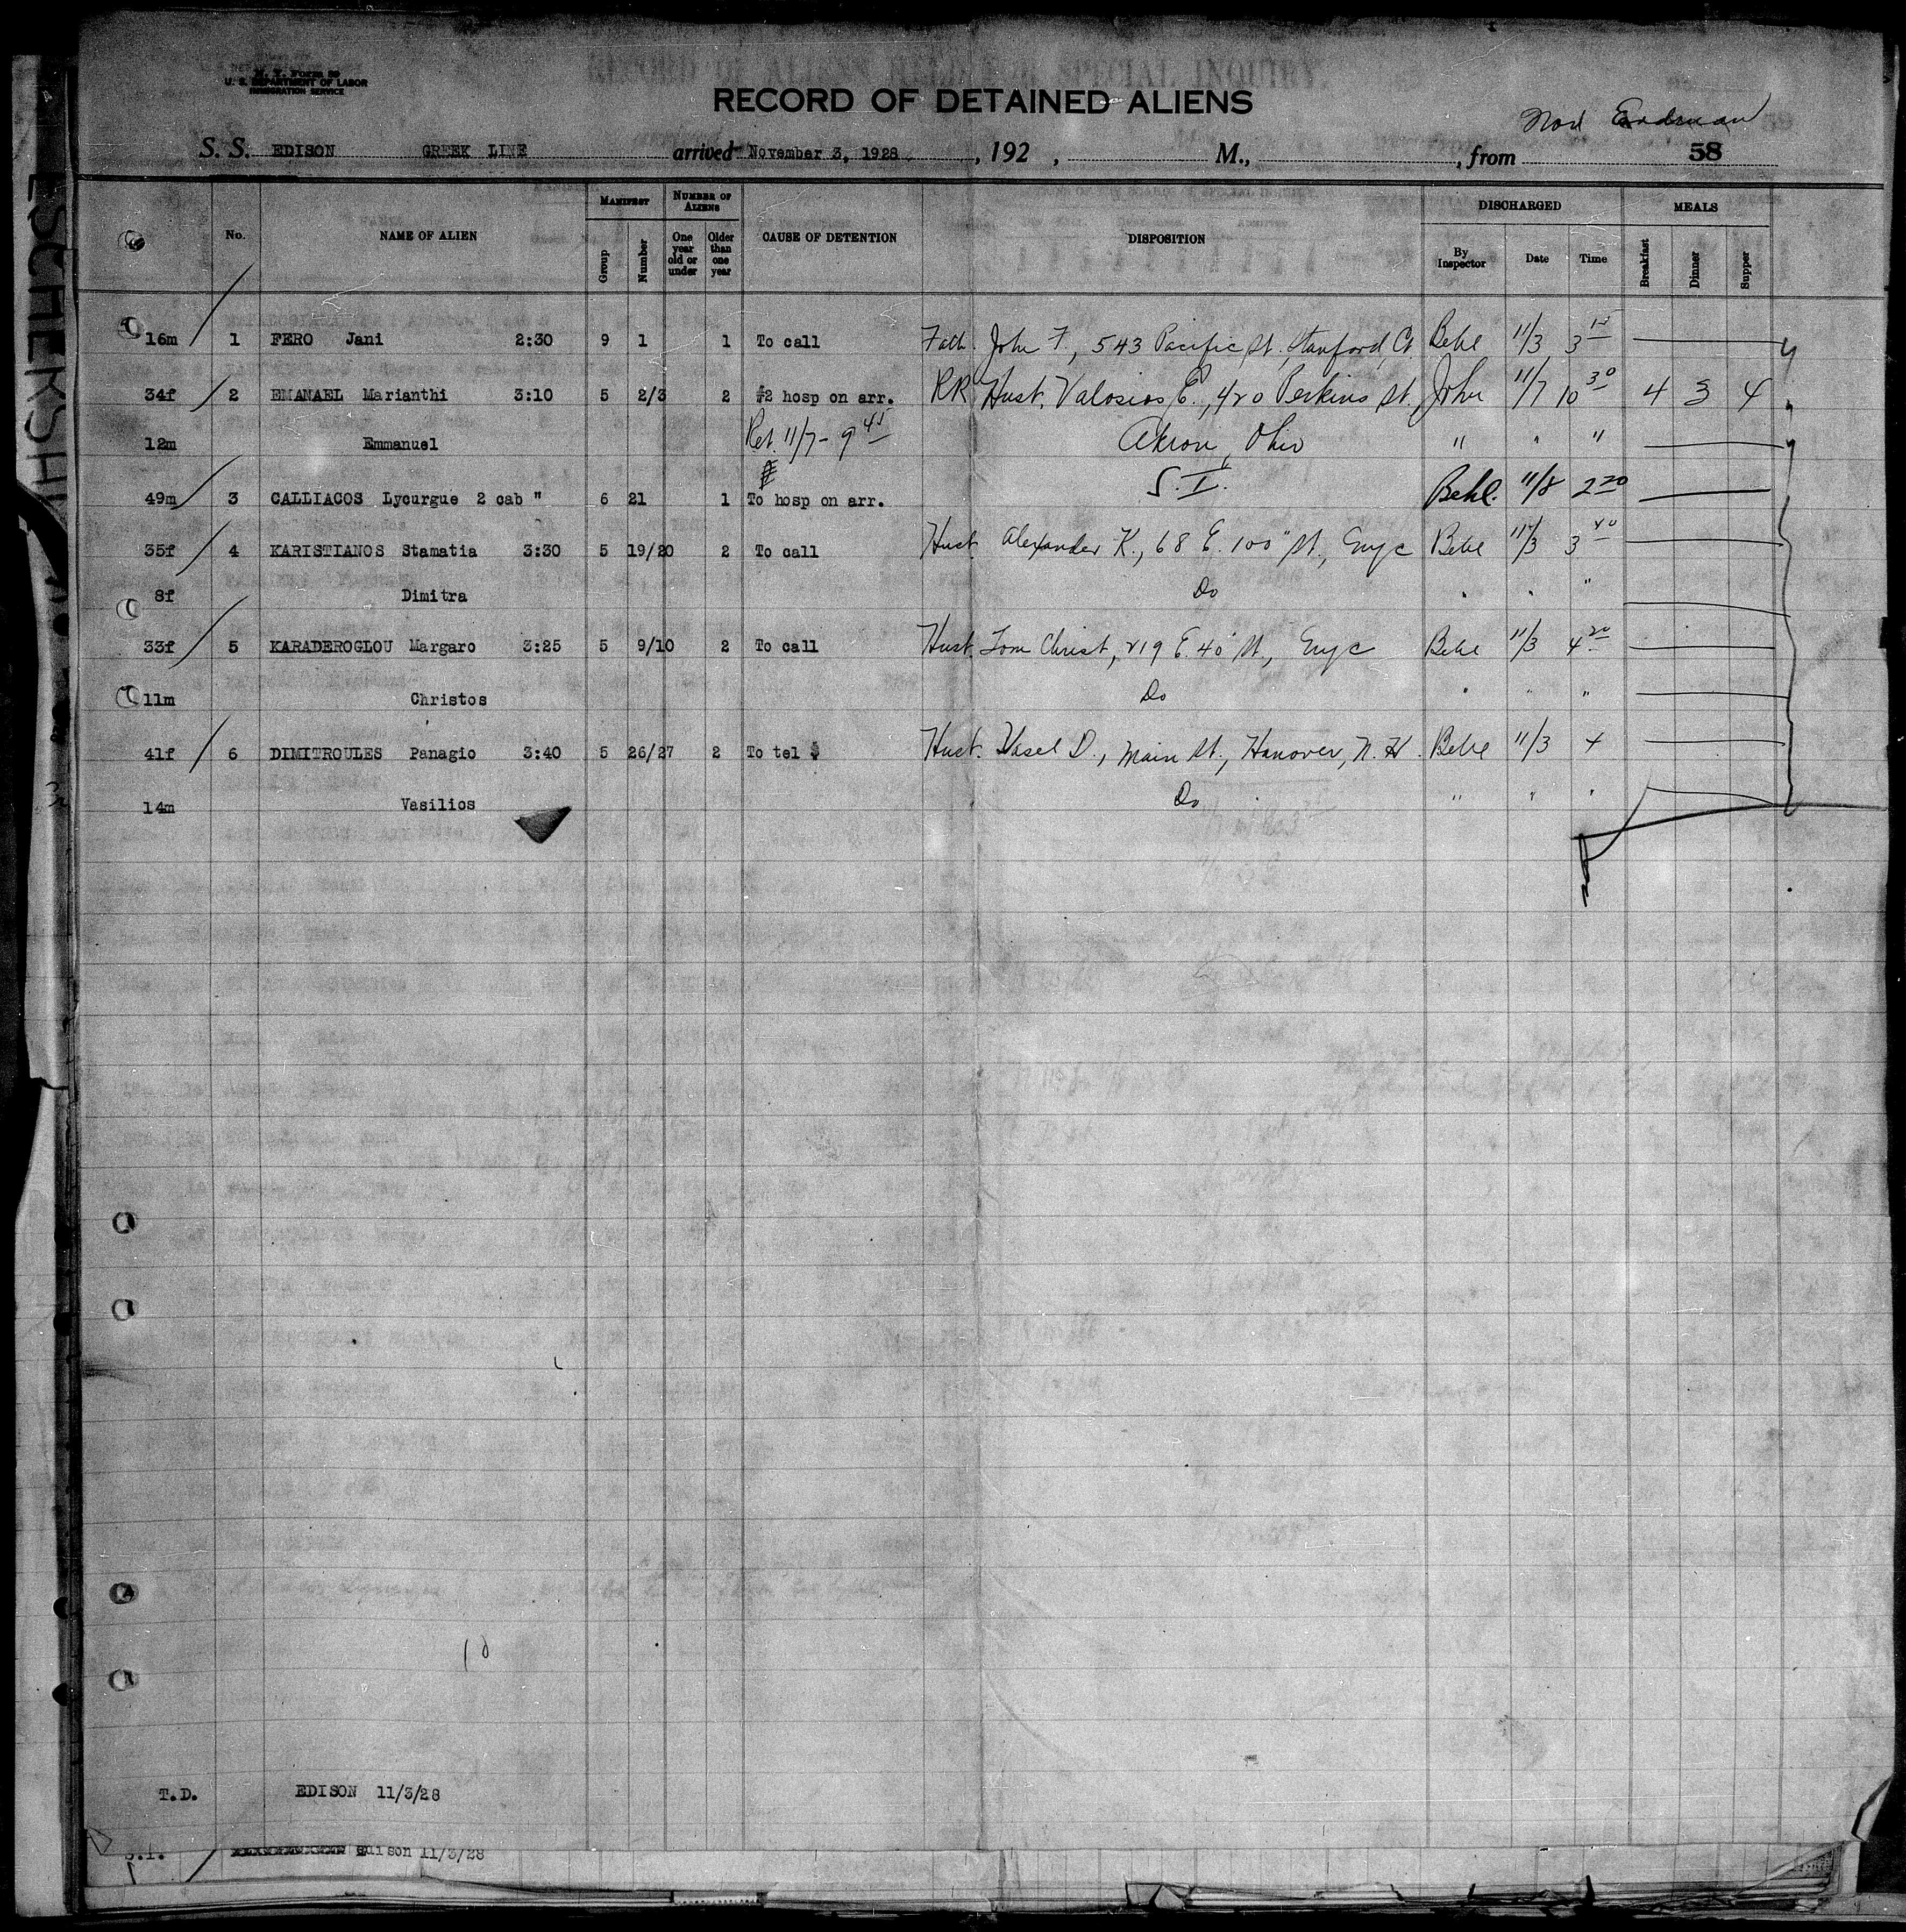 N. Y. Form 59
U. S. DEPARTMENT OF LABOR
IMMIGRATION SERVICE
RECORD OF ALIENS HELD FOR SPECIAL INQUIRY.
RECORD OF DETAINED ALIENS
S. S. EDISON GREEK LINE arrived November 3, 1928, 192 , M., , from 58
No. NAME OF ALIEN MANIFEST NUMBER OF ALIENS CAUSE OF DETENTION DISPOSITION DISCHARGED MEALS
Group Number One year old or under Older than one year By Inspector Date Time Breakfast Dinner Supper
16m 1 FERO Jani 2:30 9 1 1 To call Fath. John F., 543 Pacific St. Stanford Ct Behl 11/3 3 15
34f 2 EMANAEL Marianthi 3:10 5 2/3 2 #2 hosp on arr. RR Hust. Valosios E., 420 Perkins St. John 11/7 10 30 4 3 4
12m Emmanuel Ret. 11/7 - 9 45 Akron, Ohio " " "
49m 3 CALLIACOS Lycurgue 2 cab " 6 21 1 To hosp on arr. S.I. Behl. 11/8 2 20
35f 4 KARISTIANOS Stamatia 3:30 5 19/20 2 To call Hust Alexander K., 68 E. 100" St., Enyc Behl 11/3 3 40
8f Dimitra Do " " "
33f 5 KARADEROGLOU Margaro 3:25 5 9/10 2 To call Hust. Tom Christ, 219 E. 40" St., Enyc Behl 11/3 4 20
11m Christos Do " " "
41f 6 DIMITROULES Panagio 3:40 5 26/27 2 To tel $ Hust. Vasel D., Main St., Hanover, N. H. Behl 11/3 4
14m Vasilios Do " " "
T.D. EDISON 11/3/28
S.I. Edison 11/3/28